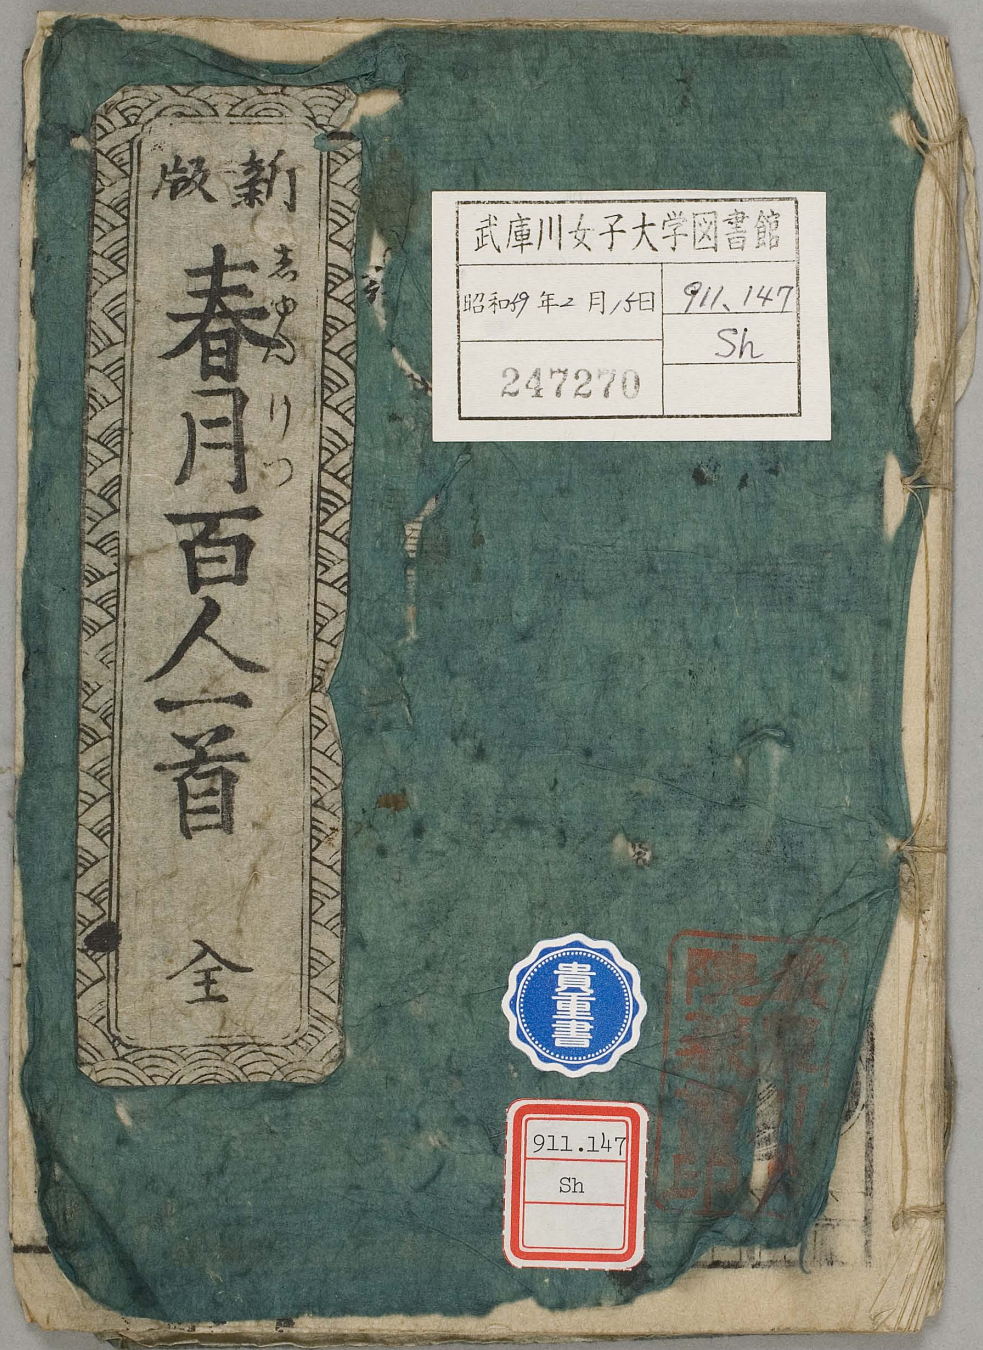 新版
春月百人一首
志ゆん
げつ
全
武庫川女子大学図書館
昭和59年2月15日
911.147
Sh
247270
貴重書
911.147
Sh